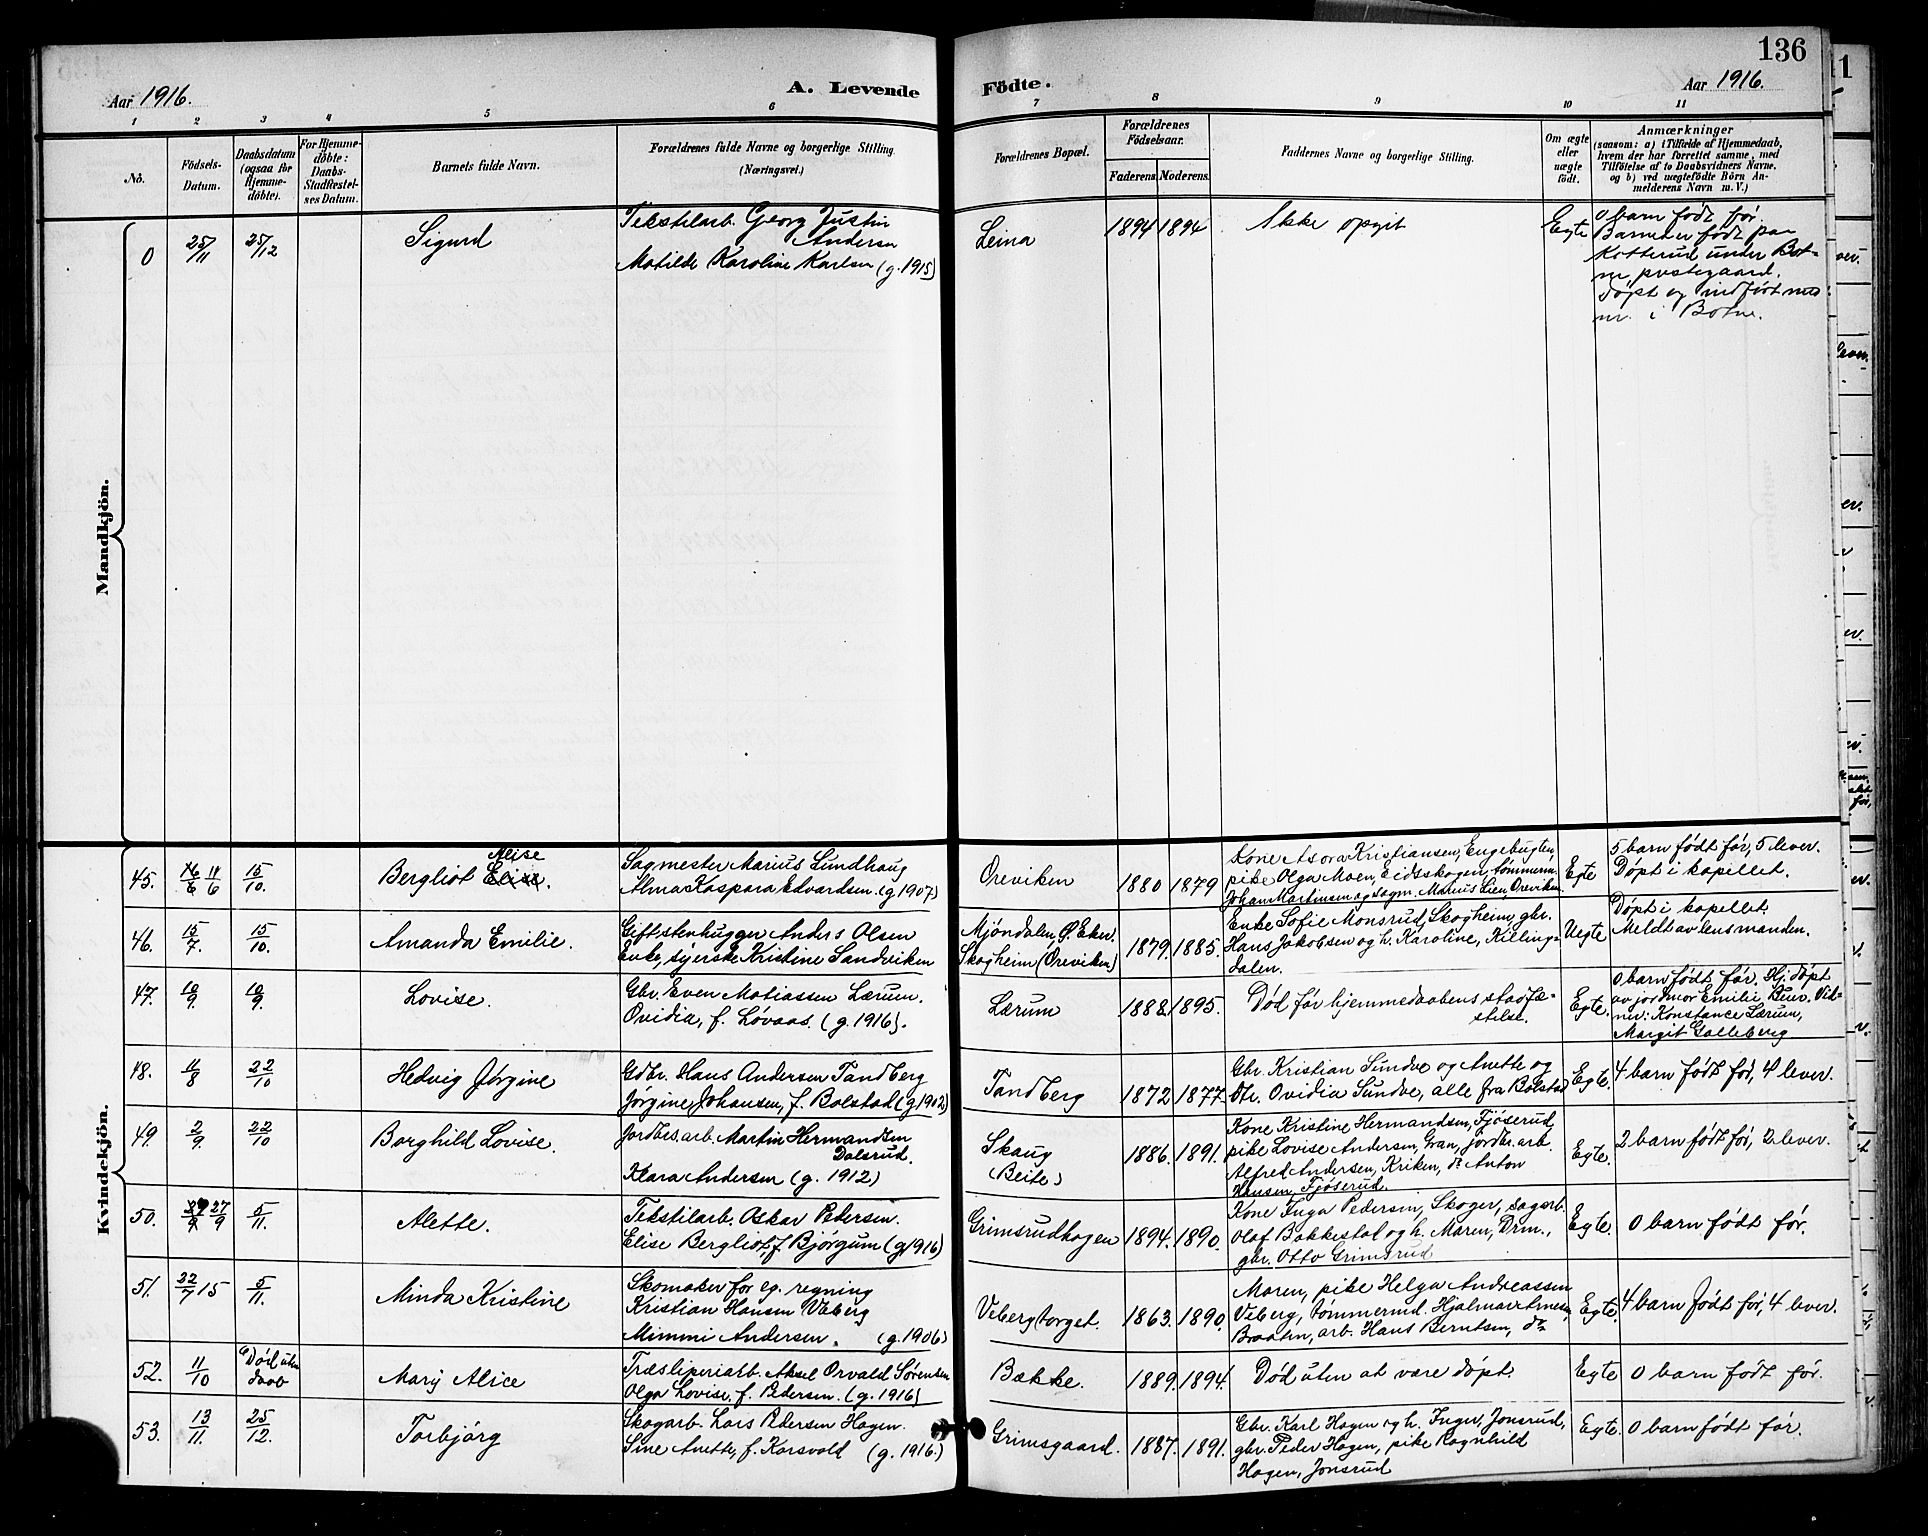 136
Aar 1916.
A. Levende
Födte.
Aar 1916.
1 2 3 4 5 6 7 8 9 10 11
No.
Födsels-
Datum.
Daabsdatum
(ogsaa for
Hjemme-
döbte).
For Hjemme-
döbte:
Daabs-
Stadfæstel-
ses Datum.
Barnets fulde Navn.
Forældrenes fulde Navne og borgerlige Stilling
(Næringsvei.)
Forældrenes Bopæl.
Forældrenes
Födselsaar.
Faderens Moderens
Faddernes Navne og borgerlige Stilling.
Om ægte
eller
uægte
født.
Anmærkninger
(saasom: a) i Tilfælde af Hjemmedaab,
hvem der har forrettet samme, med
Tilföielse af to Daabsvidners Navne,
og b) ved uægtefödte Börn An-
melderens Navn m. V.)
Mandkjön.
0
25/11
25/12
Sigurd
Tekstilarb. Georg Justin
Andersen
Matilde Karoline Karlsen (g. 1915)
Leina
1894 1894
Ikke opgit
Egte
0 barn født før.
Barnet er født paa
Kotterud under Bot-
ne prestegaard.
Døpt og indført med
nr. i Botne.
Kvindekjön.
45.
16/6 11/6
15/10.
Bergliot Elise.
Alise
Sagmester Marius Lundhaug
Alma Kaspara Edvardsen (g. 1907)
Oreviken
1880 1879
Kone Asora Kristiansen, Engebugten,
pike Olga Moen, Eidsskogen, tømmerm.
Johan Martinsen og sagm. Marius Lien, Oreviken.
Egte
5 barn født før, 5 lever.
Døpt i kapellet.
46.
15/7.
15/10.
Amanda Emilie.
Gift stenhugger Anders Olsen
Enke, syerske Kristine Sandviken
Mjøndalen, Ø. Eker.
Skogheim (Oreviken)
1879. 1885.
Enke Sofie Monsrud, Skogheim, gbr.
Hans Jakobsen og h. Karoline, Killings-
dalen.
Uegte
Døpt i kapellet.
Meldt av lensmanden.
47.
10/9.
10/9.
Lovise.
Gbr. Even Matiassen Lærum.
Ovidia, f. Løvaas. (g. 1916).
Lærum
1888. 1895.
Død før hjemmedaabens stadfæ-
stelse.
Egte.
0 barn født før. Hj. døpt
av jordmor Emilie Buer. Vid-
ner: Konstance Lærum,
Margit Galleberg
48.
11/8
22/10
Hedvig Jørgine
Gdbr. Hans Andersen Tandberg
Jørgine Johansen, f. Bolstad (g. 1902)
Tandberg
1872 1877.
Gbr. Kristian Sundve og Anette og
dtr. Ovidia Sundve, alle fra Bolstad
Egte.
4 barn født før, 4 lever.
49.
2/9.
22/10
Borghild Lovise.
Jordbes. arb. Martin Hermandsen
Dalsrud.
Klara Andersen (g. 1912)
Skaug
(Beite)
1886. 1891.
Kone Kristine Hermandsen, Fjøserud,
pike Lovise Andersen, Gran, jordbr. arb.
Alfred Andersen, Kriken, do Anton
Hansen, Fjøserud.
Egte.
2 barn født før, 2 lever.
50.
27/9
5/11.
Alette.
Tekstilarb. Oskar Pedersen.
Elise Bergliot, f. Bjørgum (g. 1916)
Grimsrudhagen
1894. 1890.
Kone Inga Pedersen, Skoger, sagarb.
Olaf Bakkestal og h. Maren, Drm.,
gbr. Otto Grimsrud
Egte.
0 barn født før.
51.
22/7 15
5/11.
Minda Kristine
Skomaker for eg. regning
Kristian Hansen Veberg
Mimmi Andersen. (g. 1906)
Vebergtorget.
1863. 1890.
Maren, pike Helga Andreassen
Veberg, tømmermd. Hjalmar Arnesen
Braaten, arb. Hans Berntsen, do
Egte.
4 barn født før, 4 lever.
52.
11/10
Død uten
daab
Mary Alice
Træsliperiarb. Aksel Orvald Sørensen
Olga Lovise, f. Pedersen. (g. 1916)
Bække.
1889. 1894.
Død uten at være døpt.
Egte
0 barn født før.
53.
13/11.
25/12.
Torbjørg
Skogarb. Lars Pedersen Hagen.
Sine Anette, f. Korsvold (g. 1916.)
Grimsgaard.
1887. 1891.
Gbr. Karl Hagen og h. Inger, Jonsrud,
gbr. Peder Hagen, pike Ragnhild
Hagen, Jonsrud
Egte.
0 barn født før.